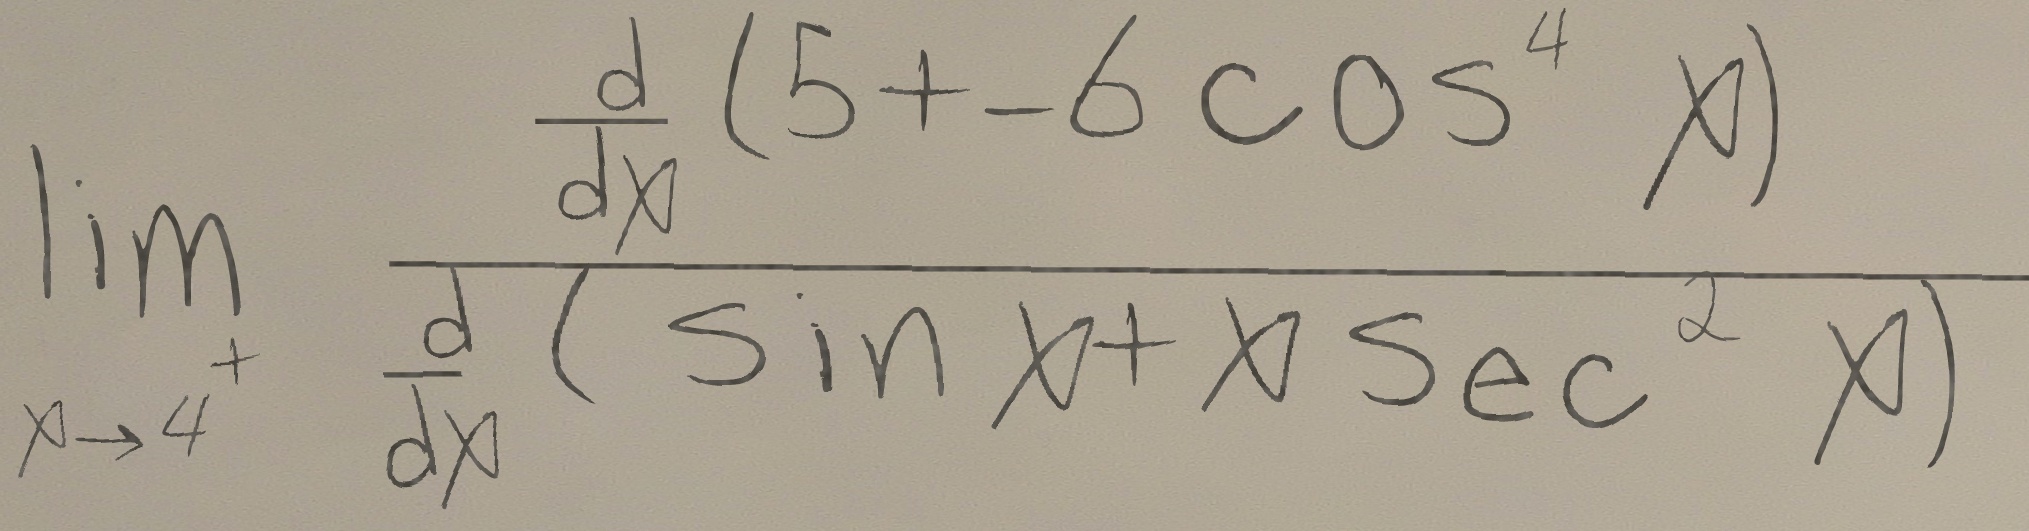 \lim_{x \to 4^+} \frac{\frac{d}{dx}(5+-6\cos^4 x)}{\frac{d}{dx}(\sin x+x\sec^2 x)}